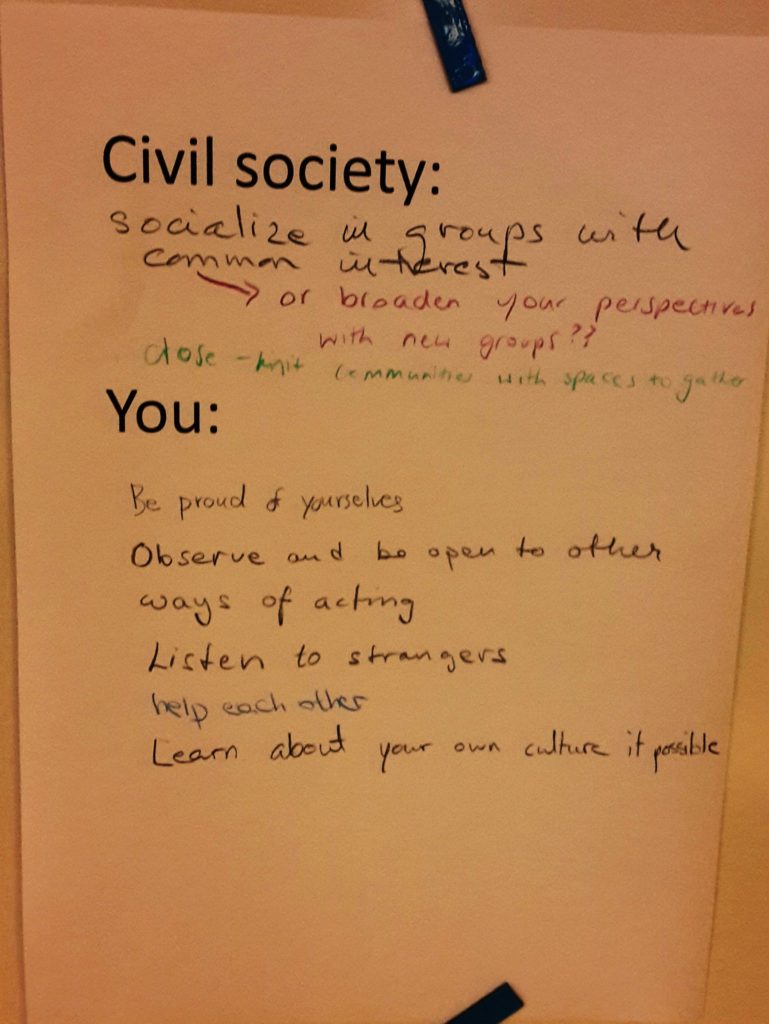 Civil society:
socialize in groups with
common interest
→ or broaden your perspectives
with new groups??
close-knit communities with spaces to gather
You:
Be proud of yourselves
Observe and be open to other
ways of acting
Listen to strangers
help each other
Learn about your own culture if possible